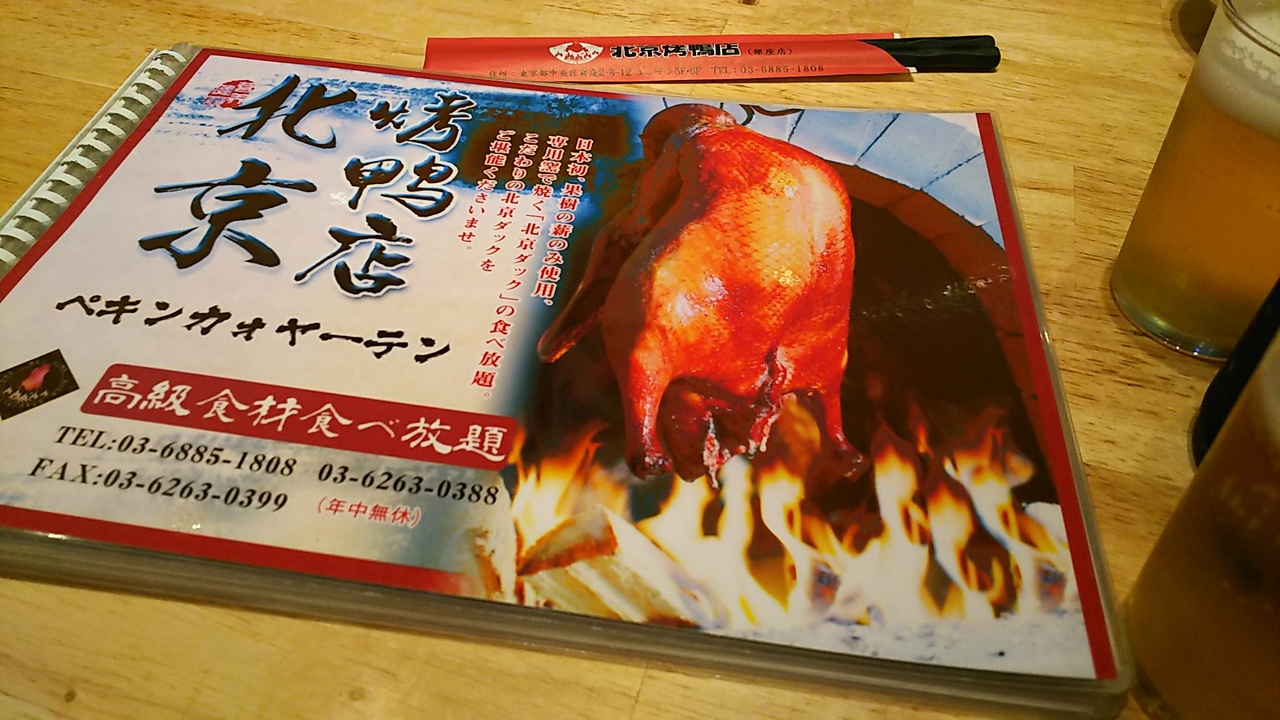 北京烤鴨店(銀座店)
住所:東京都中央区銀座2-8-12 ユニデン5F・6F TEL:03-6885-1808
北京
烤鴨店
ペキンカオヤーテン
日本初、果樹の薪のみ使用、
専用窯で焼く「北京ダック」の食べ放題。
こだわりの北京ダックを
ご堪能くださいませ。
高級食材食べ放題
TEL:03-6885-1808 03-6263-0388
FAX:03-6263-0399 (年中無休)